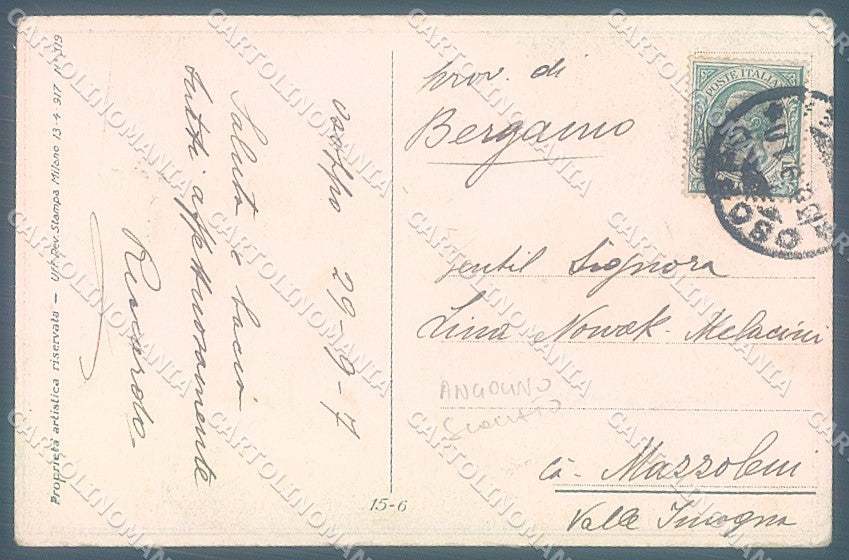 Proprietà artistica riservata — Uff. Rev. Stampa Milano 13-4-917 N. 319
29-9-7
Saluti e baci
tutti affettuosamente
Riccardo
15-6
prov. di
Bergamo
POSTE ITALIANE
Gentil Signora
Lina Nowak Melacini
ANGOLINO
SCIUPATO
Cà - Mazzoleni
Valle Imagna
CARTOLINOMANIA